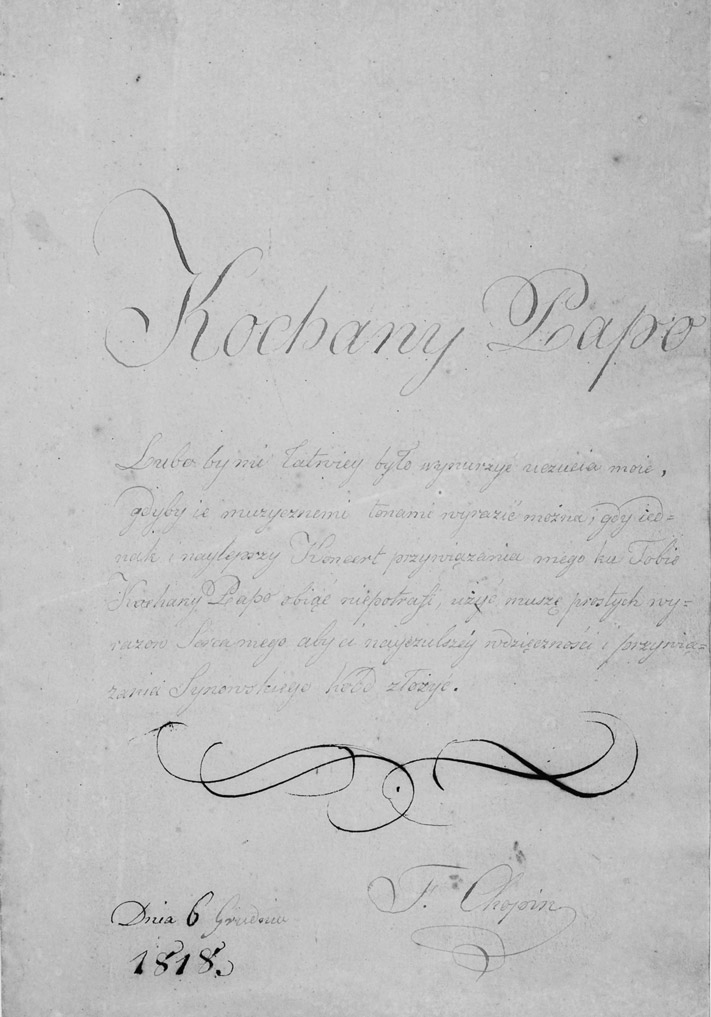 Kochany Papo
Lubo by mi łatwiey było wynurzyć uczucia moie,
gdyby ie muzycznemi tonami wyrazić można; gdy ied=
nak i naylepszy Koncert przywiązania mego ku Tobie
Kochany Papo obiąć niepotrafi, użyć muszę prostych wy=
razow Serca mego aby ci nayczulszéy wdzięczności i przywią=
zania Synowskiego hołd złożyć.
F. Chopin
Dnia 6 Grudnia
1818.